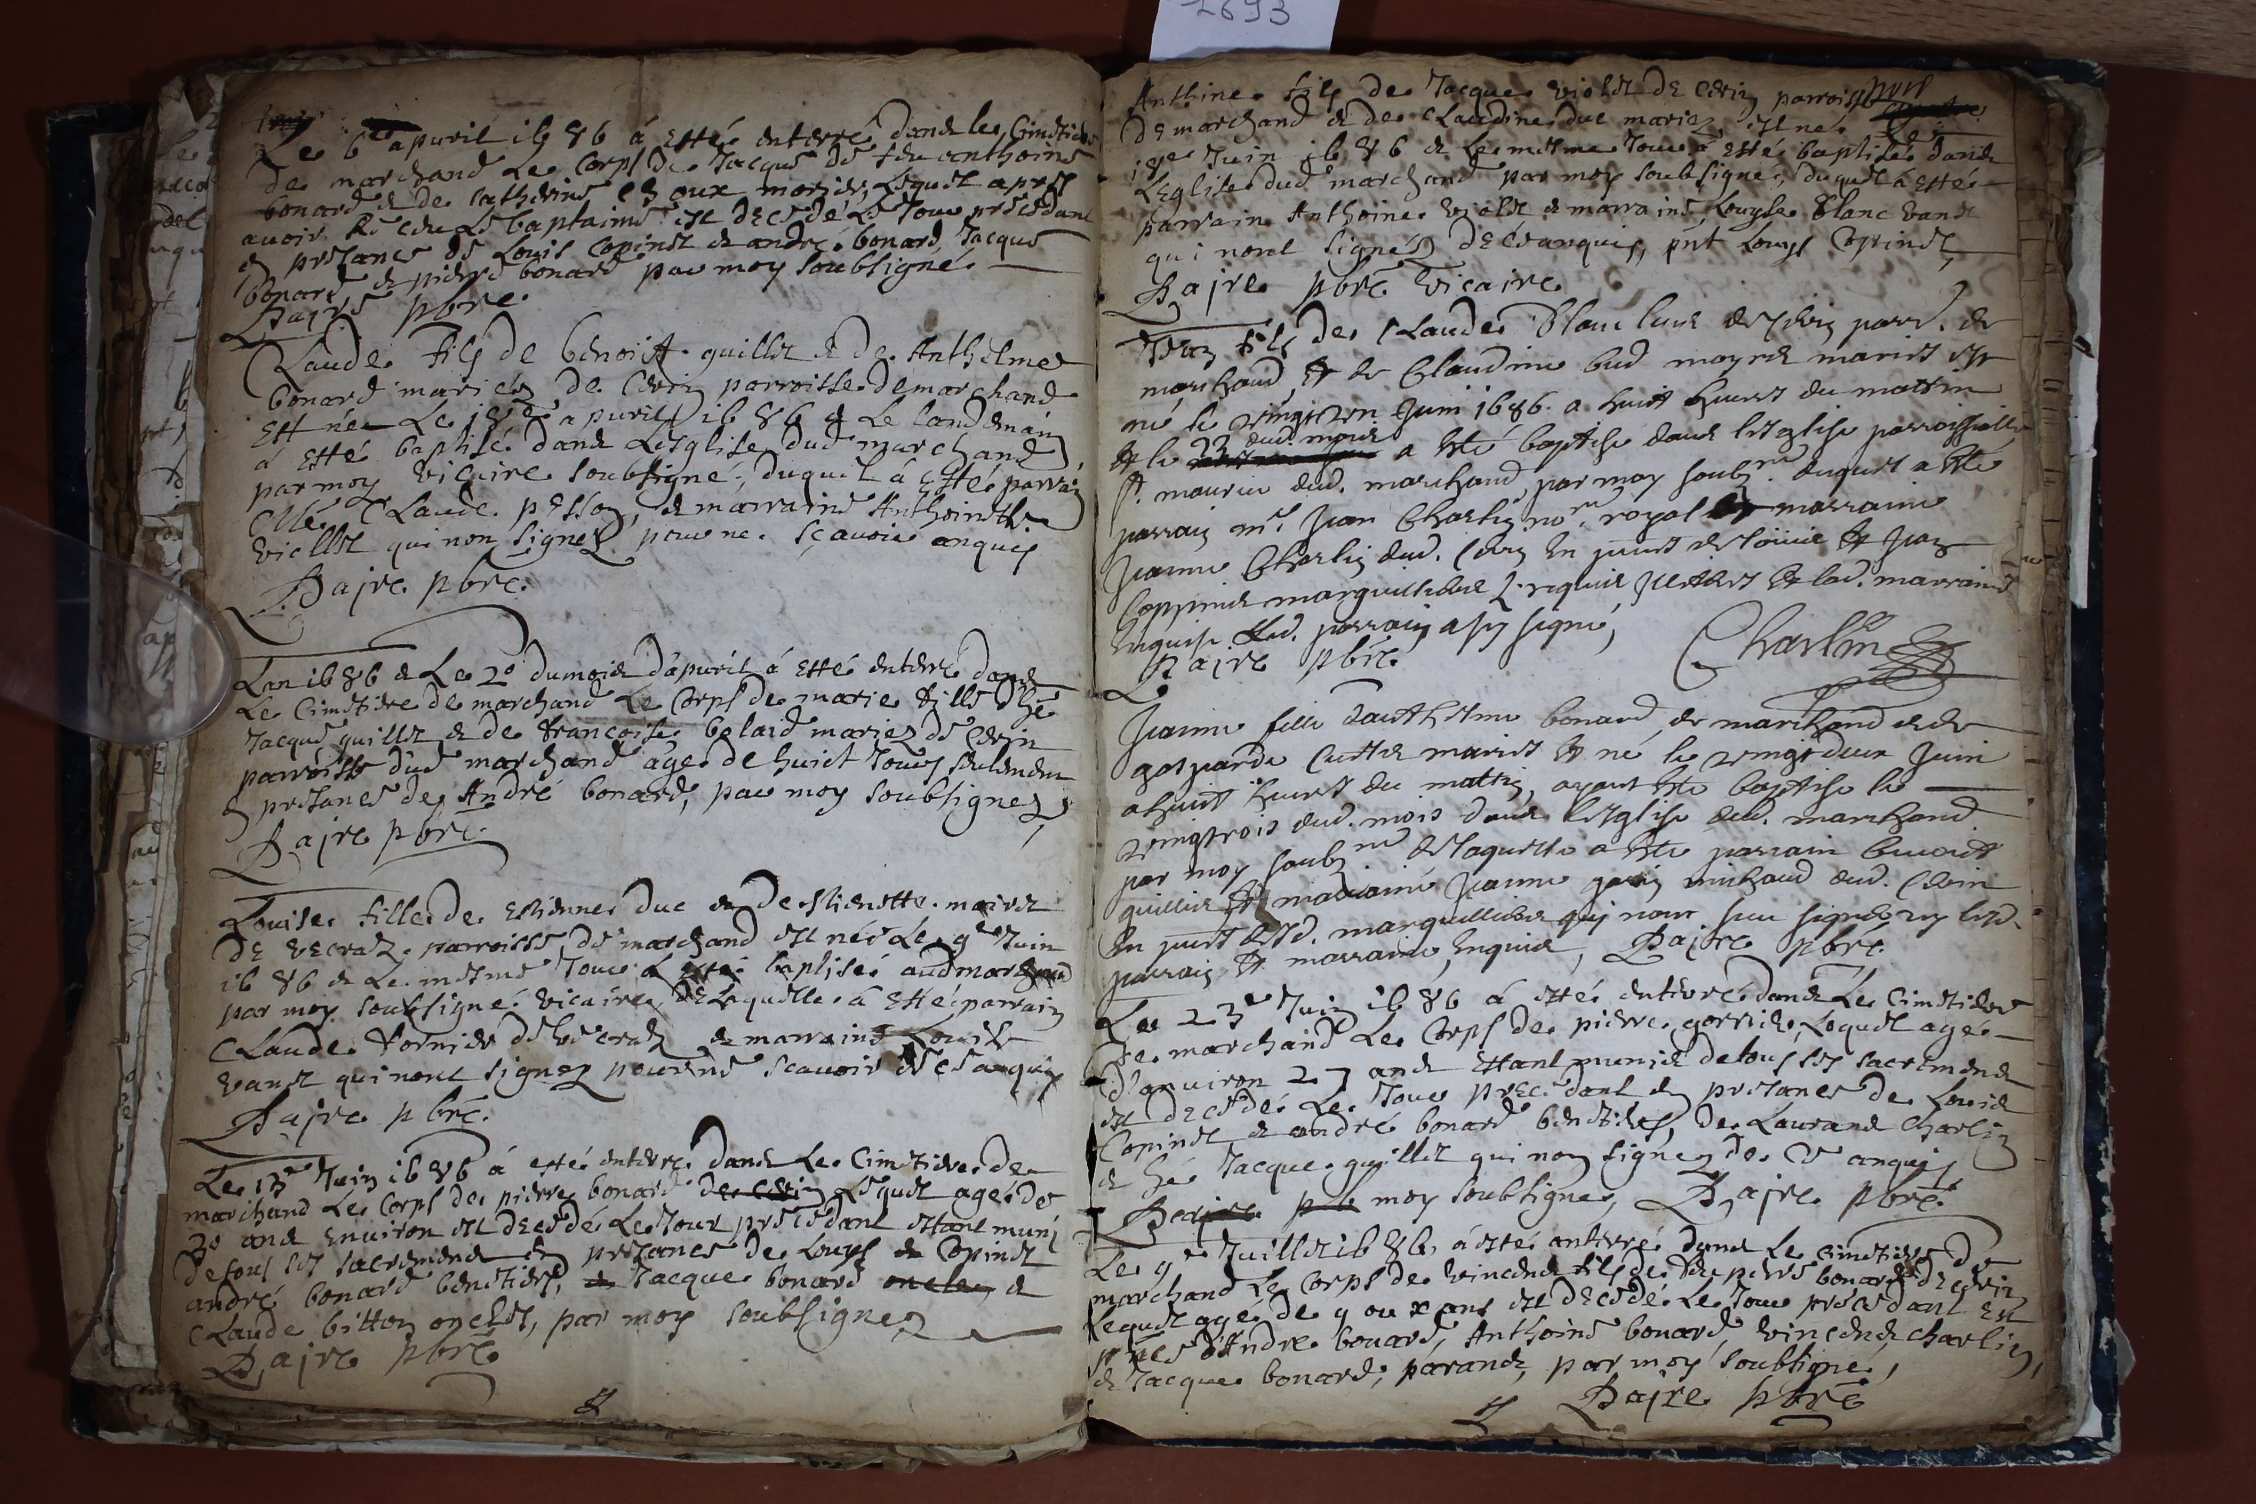 2693
Le 6e apuril 1686 á esté enterré dans le cimetiere
de marchand le corps de Jacque de feu anthoine
bonard & de catherine mariés, lequel apres
avoir receu le baptaime est decedé le jour precedant
en presance de Louis Copinet & andré bonard, Jacque
bonard & pierre bonard par moy soubsigné
Bajre pbre.
Claude fils de benoist guillet & de Anthelme
bonard mariez de Cerin parroisse de marchand
est née le 18e apuril 1686 & le landemain
á esté baptisé dans Lesglise dud marchand
par moy vicaire soubsigné, duquel á esté parrain
Mre Claude pesson, & marraine Anthoinette
viellet qui non signez pour ne sçavoir enquis
Bajre pbre.
Lan 1686 & Le 20 du mois dapuril á esté enterré dans
Le cimetiere de marchand Le Corps de marie fille dhe
Jacque guillet & de francoise belaid mariez de Cerin
parroisse dud marchand agée de huict jours seulement
en presance de André bonard, par moy soubsignez
Bajre pbre.
Louise fille de estienne duc & de pienette mairet
de vecrat parroisse de marchand est née Le 9e Juin
1686 & Le mesme jour a esté baptisée aud marchand
par moy soubsigné vicaire, de Laquelle á esté parrain
Claude fornier de vecrat & marraine Louise
vanet qui nont signez pour ne scavoir de ce enquis
Bajre pbre.
Le 13e Juin 1686 á esté enterré dans Le Cimetiere de
marchand Le Corps de pierre bonard de cerin Lequel agé de
30 ans environ est decedé Le jour precedant estant muni
de tous ses sacremens en presance de Louys & Copinet
andré bonard benetiers, & Jacque bonard oncle, &
Claude bitton oncles, par moy soubsignez
Bajre pbre
Anthine fils de Jacque violet de Cerin parroisse
de marchand & de Claudine duc mariez est né
18e Juin 1686 & Le mesme jour á esté baptisé dans
L'eglise dud marchand par moy soubsigné, duquel á esté
parrain Anthoine violet & marraine Louyse blanc vanet
qui nont signéz de ce anquis, pnt Louys Copinet,
Bajre pbre vicaire
Jean fils de Claude blanc de Cerin parr. de
marchand, et de Claudine bud mayret mariés est
né le vingt un Juin 1686 a huict heures du mattin
et le 22 dud mois a esté baptisé dans lesglise parroissialle
St. maurice dud. marchand par moy soubzné. duquel a esté
parrain mre Jean Charlin nore royal et marraine
Jeanne Charlin dud. Cerin en pnce de louie et Jean
Coppinet marguilliers L. requis Jllettrés et lad. marraine
enquise led. parrain a sy signé,
Bajre pbre Charlin
Jeanne fille danthelme bonard, de marchand et de
gasparde Cuttier mariés est né le vingt deux Juin
a huict heures du mattin, ayant esté baptisé le
vingtrois dud. mois dans lesglise dud. marchand
par moy soubzné de laquelle a esté parrain benoict
guillier et marraine Jeanne gavin michaud dud. Cerin
en pnce desd. marguilliers qui nont sceu signer ny lesd.
parrain et marraine, enquis, Bajre pbre.
Le 23e Juin 1686 á esté enterré dans Le Cimetiere
de marchand Le Corps de pierre gorrier, Lequel agé
d'anviron 27 ans estant munis de tous ses sacremens
est decedé Le jour precedant en presance de Louis
Copinet & andré bonard benetiers, de Laurand Charlin
& he Jacque guillet qui non signez de ce anquis
moy soubsigné, Bajre pbre.
Le 9e Juillet 1686 á esté anterré dans Le cimetiere de
marchand Le Corps de vincend fils de feu pierre bonard de Cerin
Lequel agé de 9 ou x ans est decedé Le jour precedant en
pnce d'Andre bonard, Anthoine bonard, vincend charlin,
& Jacque bonard, parandz, par moy soubsigné,
Bajre pbre